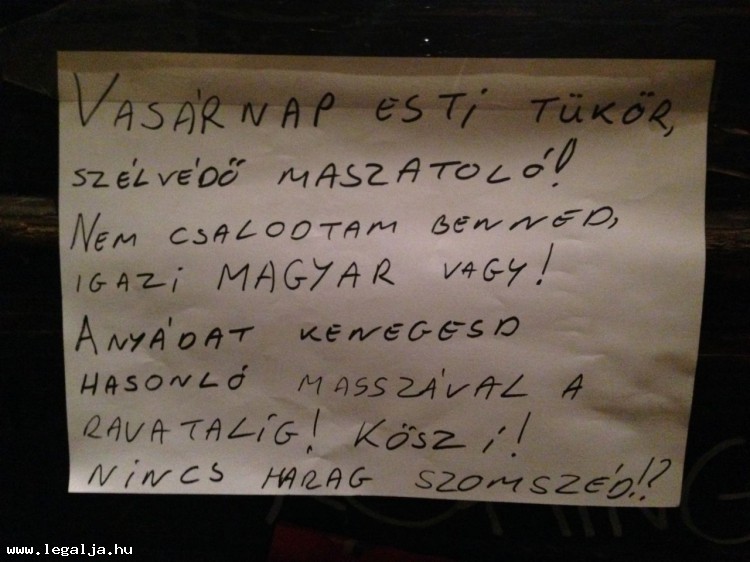 VASÁRNAP ESTI TÜKÖR,
SZÉLVÉDŐ MASZATOLÓ!
NEM CSALODTAM BENNED,
IGAZI MAGYAR VAGY!
ANYÁDAT KENEGESD
HASONLÓ MASSZÁVAL A
RAVATALIG! KÖSZI!
NINCS HARAG SZOMSZÉD!?
www.legalja.hu